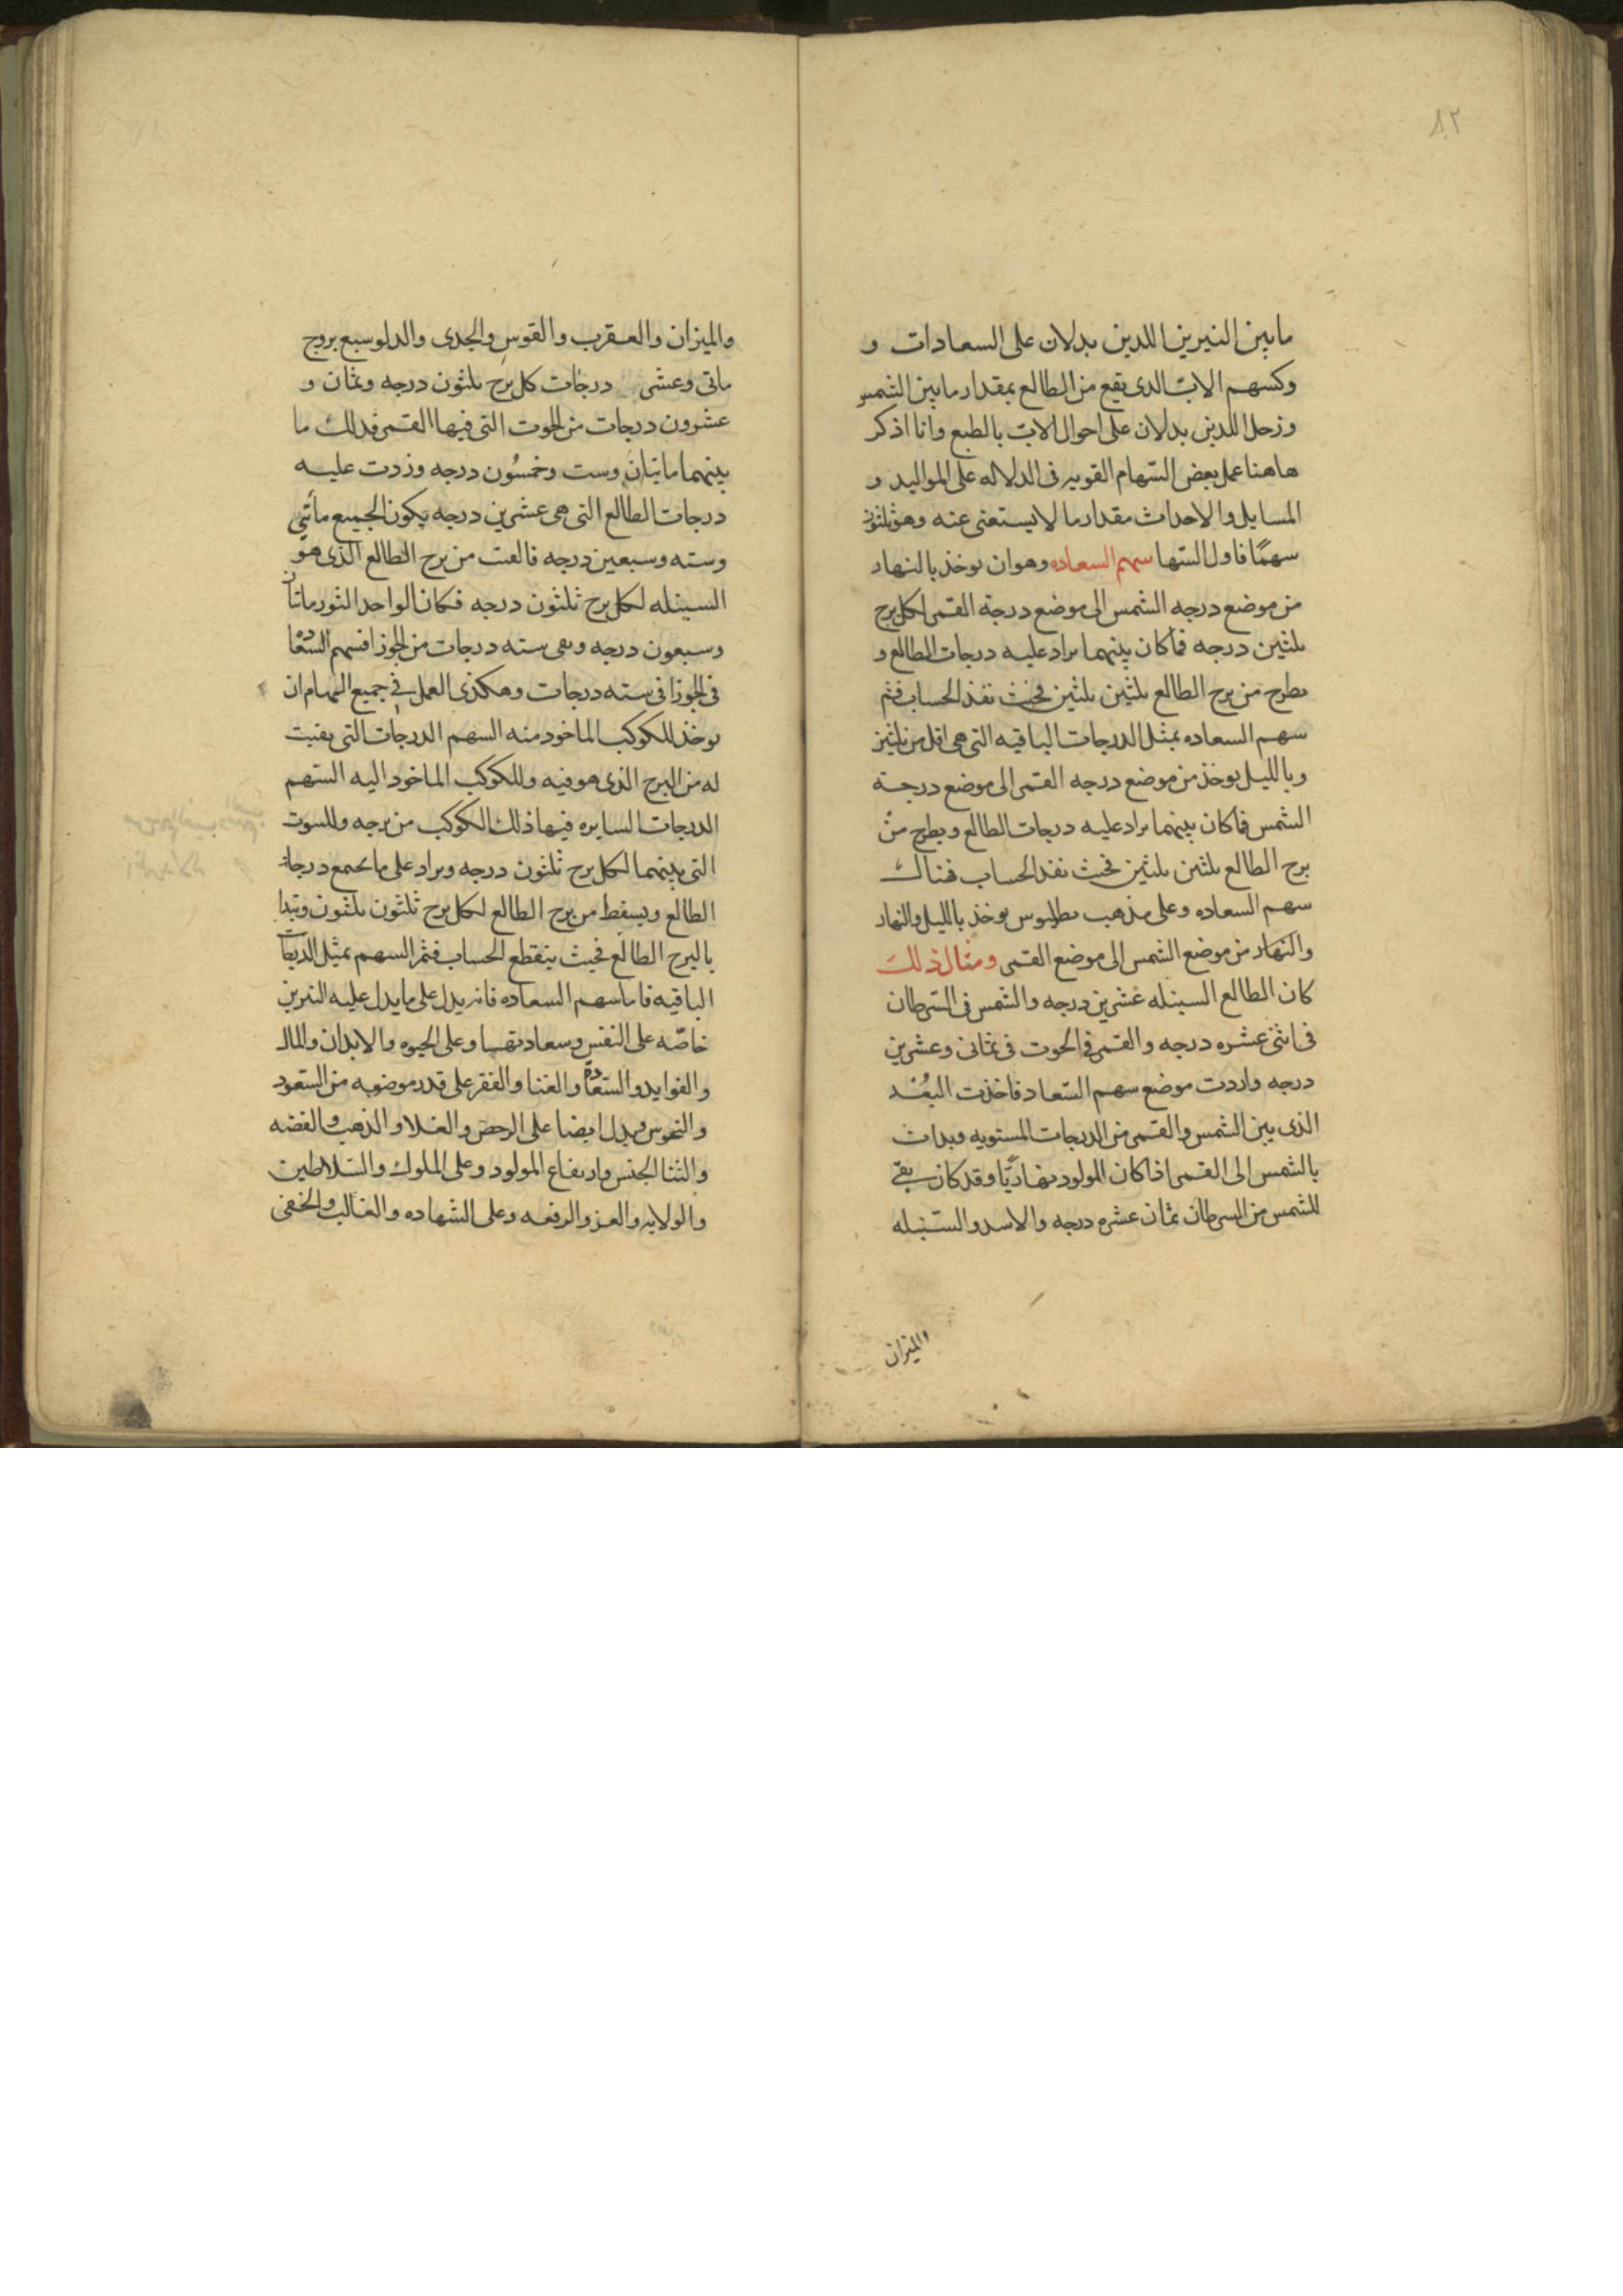 ٨٢
مابين النيرين اللدين يدلان على السعادات و
وكسهم الاب الدى يقع من الطالع بمقدار مابين الشمس
وزحل اللدين يدلان على احوال الاب بالطبع وانا اذكر
هاهنا عمل بعض السهام القويه فى الدلاله على المواليد و
المسايل والاحداث مقدار ما لا يستغنى عنه وهو ثلثون
سهمًا فاول السها سهم السعاده وهو ان يوخذ بالنهار
من موضع درجه الشمس الى موضع درجة القمر لكل برج
ثلثين درجه فما كان بينهما يراد عليه درجات الطالع و
يطرح من برج الطالع ثلثين ثلثين فحيث نفذ الحساب فثم
سهم السعاده بمثل الدرجات الباقيه التى هى اقل من ثلثين
وبالليل يوخذ من موضع درجه القمر الى موضع درجة
الشمس فما كان بينهما يراد عليه درجات الطالع ويطرح من
برج الطالع ثلثين ثلثين فحيث نفذ الحساب فهناك
سهم السعاده وعلى مذهب بطليوس يوخذ بالليل والنهار
والنهار من موضع الشمس الى موضع القمر ومثال ذلك
كان الطالع السنبله عشرين درجه والشمس فى السرطان
فى اثنى عشره درجه والقمر فى الحوت فى ثمانى وعشرين
درجه واردت موضع سهم السعاد فاخذت البُعْد
الذى بين الشمس والقمر من الدرجات المستويه وبدات
بالشمس الى القمر اذا كان المولود نهاريًّا وقد كان بقى
للشمس من السرطان ثمان عشره درجه والاسد والسنبله
والميزان
والميزان والعقرب والقوس والجدى والدلو سبع بروج
ماتى وعشر درجات كل برج ثلثون درجه وثمان و
عشرون درجات من الحوت التى فيها القمر فدلك ما
بينهما ماتيان وست وخمسُون درجه وزدت عليه
درجات الطالع التى هى عشرين درجه يكون الجميع مأتى
وسته وسبعين درجه فالقت من برج الطالع الذى هو
السنبله لكل برج ثلثون درجه فكان الواحد الثور ماتان
وسبعون درجه وبقى سته درجات من الجوزا فسهم السعاده
فى الجوزا فى سته درجات وهكذى العمل فى جميع السهام ان
يوخذ للكوكب الماخود منه السهم الدرجات التى بقيت
له من البرج الذى هو فيه وللكوكب الماخود اليه السهم
الدرجات السايره فيها ذلك الكوكب من برجه وللبيوت
التى بينهما لكل برج ثلثون درجه ويراد على ما يجمع درجات
الطالع ويسقط من برج الطالع لكل برج ثلثون ثلثون ويبدا
بالبرج الطالع فحيث ينقطع الحساب فثم السهم بمثل الدرجات
الباقيه فاما سهم السعاده فانه يدل على ما يدل عليه النيرين
خاصّه على النفس وسعادتها وعلى الحيوه والابدان والمال
والفوايد والسعاده والغنا والفقر على قدر موضعه من السعود
والنحوس ويدل ايضا على الرخص والغلا والذهب والفضه
والثنا الجنس وارتفاع المولود وعلى الملوك والسلاطين
والولايه والعز والرفعه وعلى الشهاده والغالب والخفى